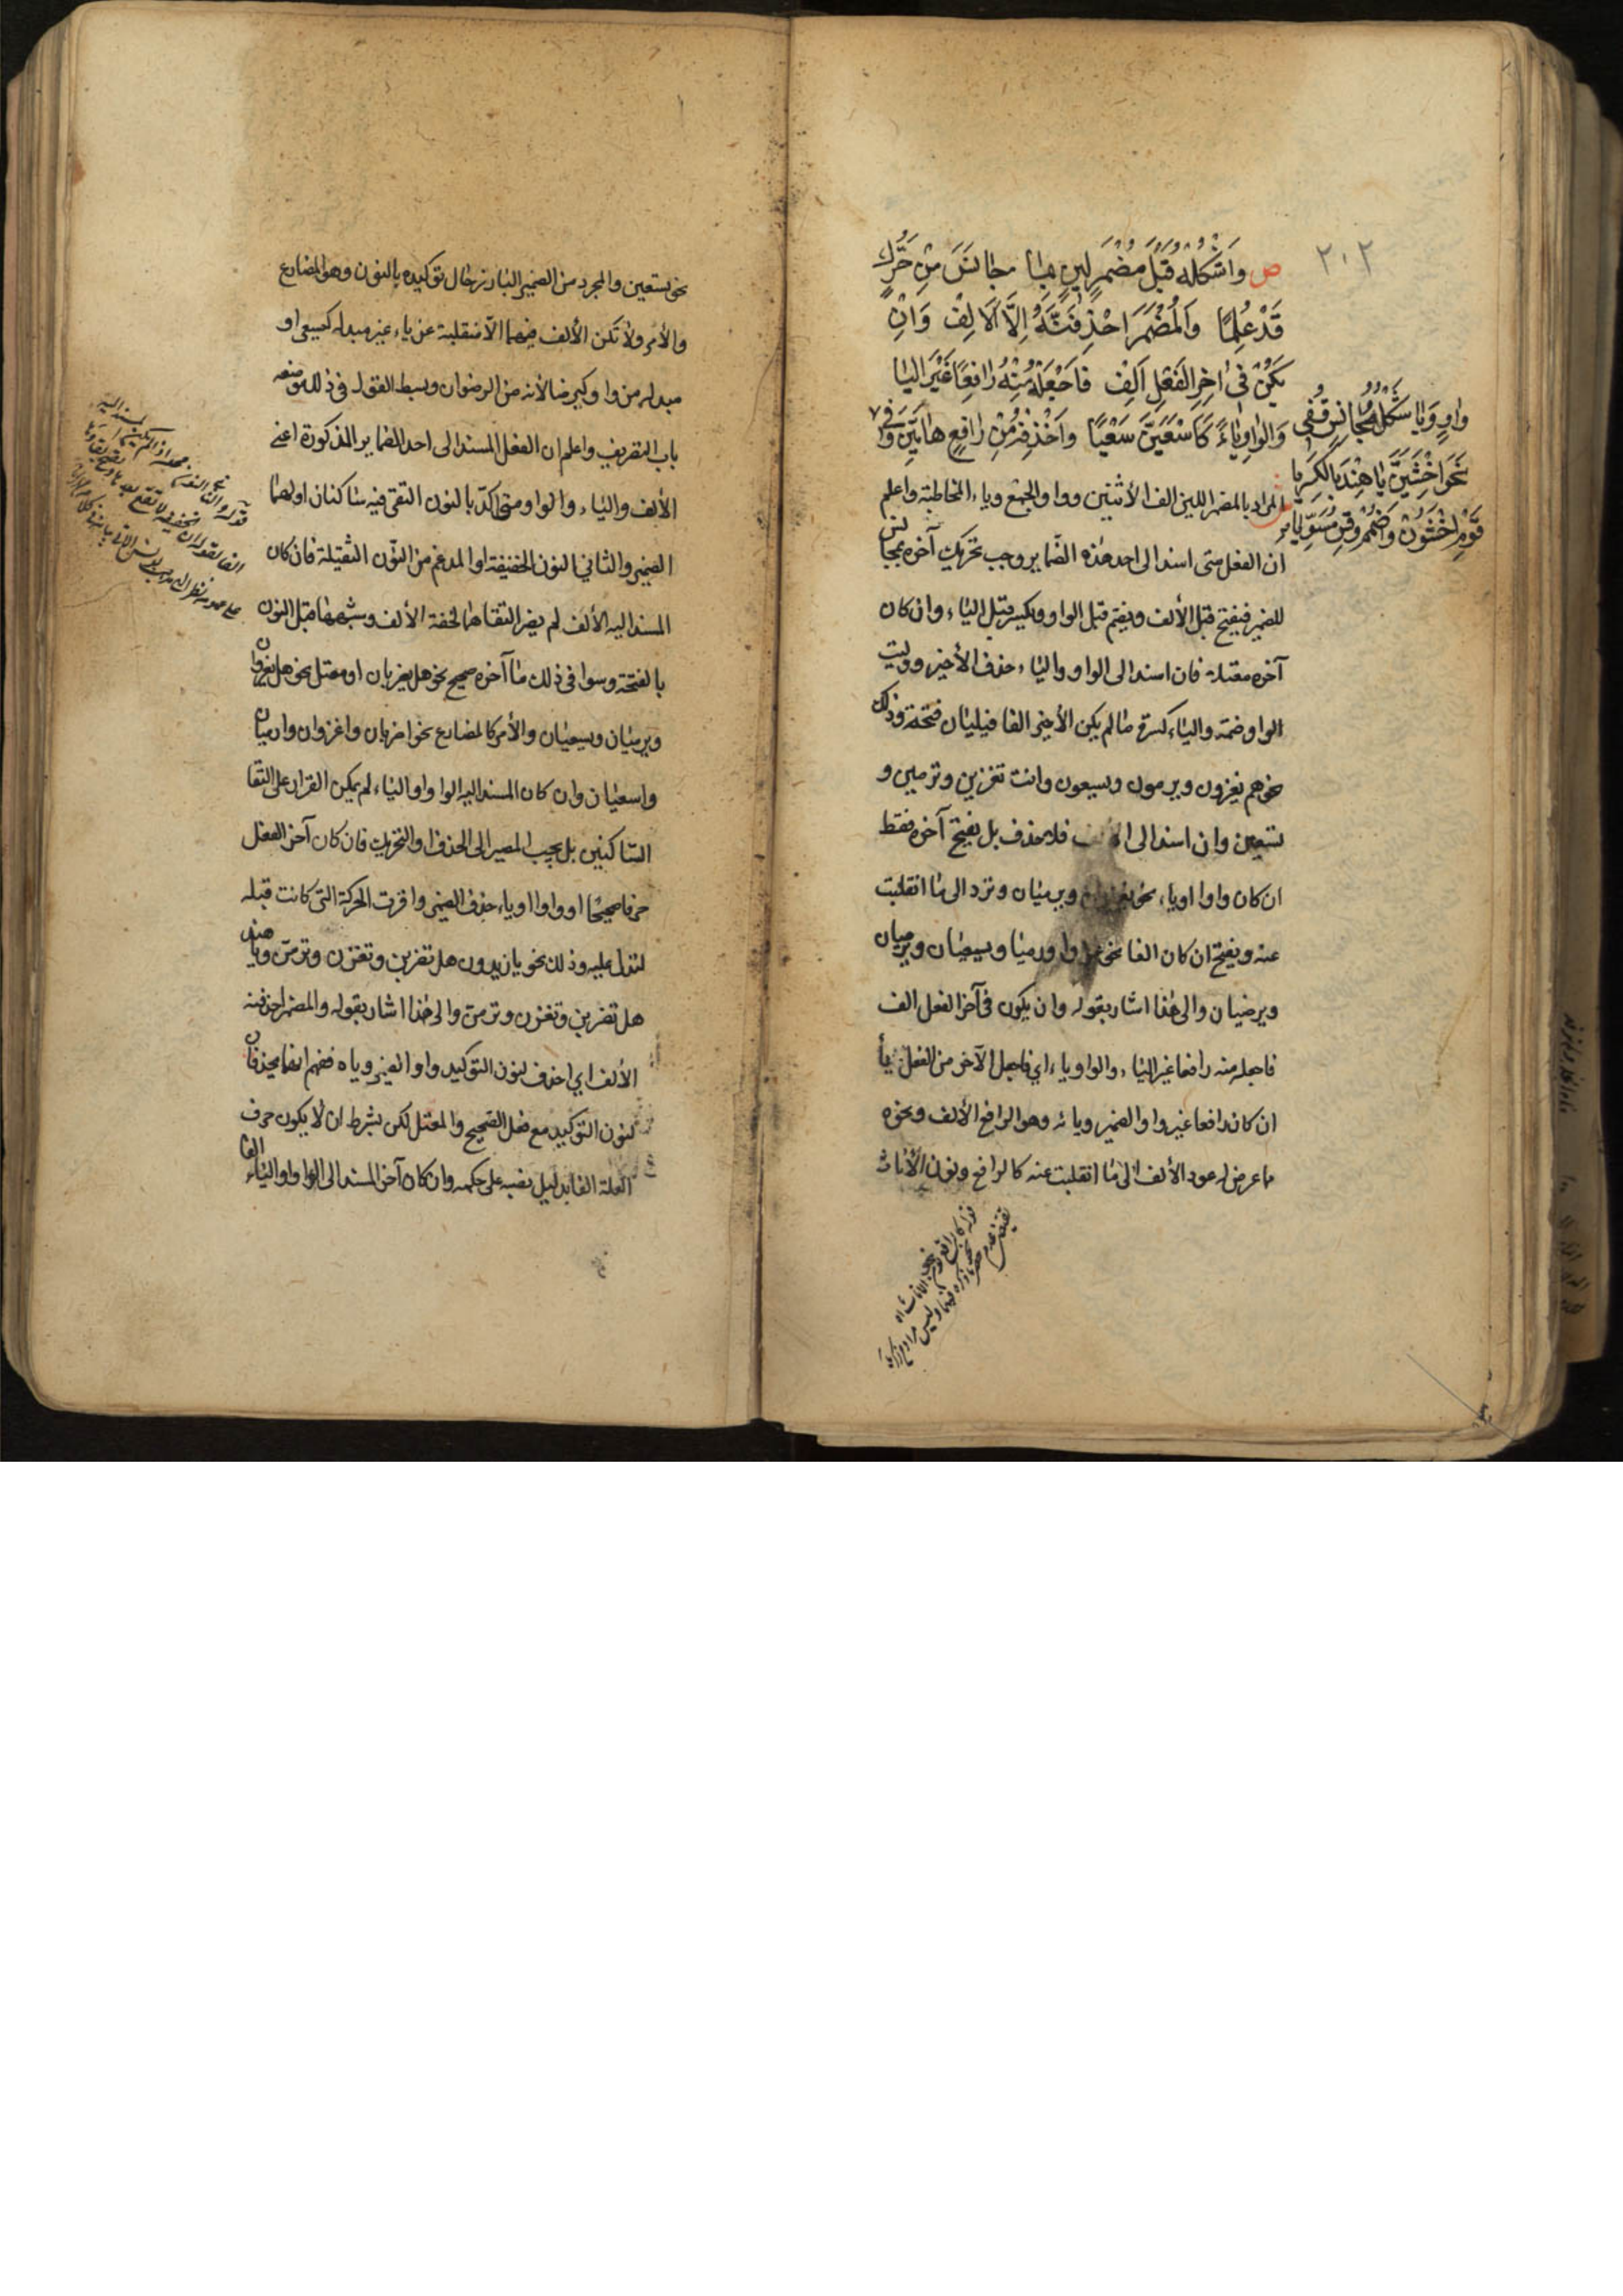 ٢٠٢
ص وَاشْكُلْهُ قَبْلَ مُضْمَرٍ لَيْنٍ بِمَا جَانَسَ مِنْ تَحَرُّكٍ
قَدْ عُلِمَا وَالْمُضْمَرَ احْذِفَنَّهُ اِلَّا الْاَلِفْ وَاِنْ
يَكُنْ فِى اٰخِرِ الْفِعْلِ اَلِفْ فَاجْعَلْهُ مِنْهُ رَافِعًا غَيْرَ اليَا
وَالْوَاوِ يَاءً كَاسْعَيَنَّ سَعْيًا وَاحْذِفْهُ مِنْ رَافِعِ هَاتَيْنِ وَفِى
وَاوٍ وَيَا شَكْلٌ مُجَانِسٌ قُفِى
نَحْوُ اخْشَيِنْ يَا هِنْدُ بِالْكَسْرِ يَا
قَوْمِ اخْشَوُنْ وَاضْمُمْ وَقِسْ مُسَوِّيًا
ش المراد بالمضمر اللين الف الأثنين وواو الجمع وياء المخاطبة واعلم
ان الفعل متى اسند الى احد هذه الضماير وجب تحريك آخره بمجانس
للضمير فيفتح قبل الألف ويضم قبل الواو ويكسر قبل الياء وان كان
آخره معتلا فان اسند الى الواو والياء حذف الأخير ووليت
الواو ضمة والياء كسرة ما لم يكن الأخير الفا فيليان فتحة وذلك
نحو هم يغزون ويرمون ويسعون وانت تغزين وترمين و
تسعين وان اسند الى الألف فلا يحذف بل يفتح آخره فقط
ان كان واوا او ياء نحو يغزوان ويرميان وترد الى ما انقلبت
عنه ويفتح ان كان الفا نحو غزوا ورميا ويسعيان ويرميان
ويرضيان والى هذا اشار بقوله وان يكون فى آخر الفعل الف
فاجعله منه رافعا غير الياء والواو ياء اي فاجعل الآخر من الفعل يأ
ان كان رافعا غير واو الضمير ويائه وهو الرافع الألف ونحوه
ما عرض له عود الألف الى ما انقلبت عنه كالرافع ونون الأناث
نحو يسعين والمجرد من الضمير البارز حال توكيده بالنون وهو المضارع
والأمر ولا تكن الألف فيهما الا منقلبة عن ياء غير مبدلة كيسعى او
مبدلة من واو كيرضا لأنه من الرضوان وبسط القول فى ذلك موضعه
باب التصريف واعلم ان الفعل المسند الى احد الضماير المذكورة اعني
الألف والياء والواو ومتى اكد بالنون التقى فيه ساكنان اولهما
الضمير والثاني النون الخفيفة او المدغم من النون الثقيلة فان كان
المسند اليه الألف لم يضر التقاهما لخفة الألف وشبهها قبل النون
بالفتحة وسوا فى ذلك ما آخره صحيح نحو هل يضربان او معتل نحو هل يغزوان
ويرميان ويسعيان والأمر كالمضارع نحو اضربان واغزوان وارميان
واسعيان وان كان المسند اليه الواو او الياء لم يمكن القرار على التقا
الساكنين بل يجب المصير الى الحذف او التحريك فان كان آخر الفعل
حرفا صحيحا او واوا او ياء حذف الضمير واقرت الحركة التى كانت قبله
لتدل عليه وذلك نحو يا زيدون هل تضربن وتغزن وترمن ويا هند
هل تضربن وتغزن وترمن والى هذا اشار بقوله والمضمر احذفنه
الألف اي احذف لنون التوكيد واو الضمير وياه ففهم انهما يحذفان
لنون التوكيد مع فعل الصحيح والمعتل لكن بشرط ان لا يكون حرف
العلة الفا بدليل نصبه على حكمه وان كان آخر المسند الى الواو والياء الفا